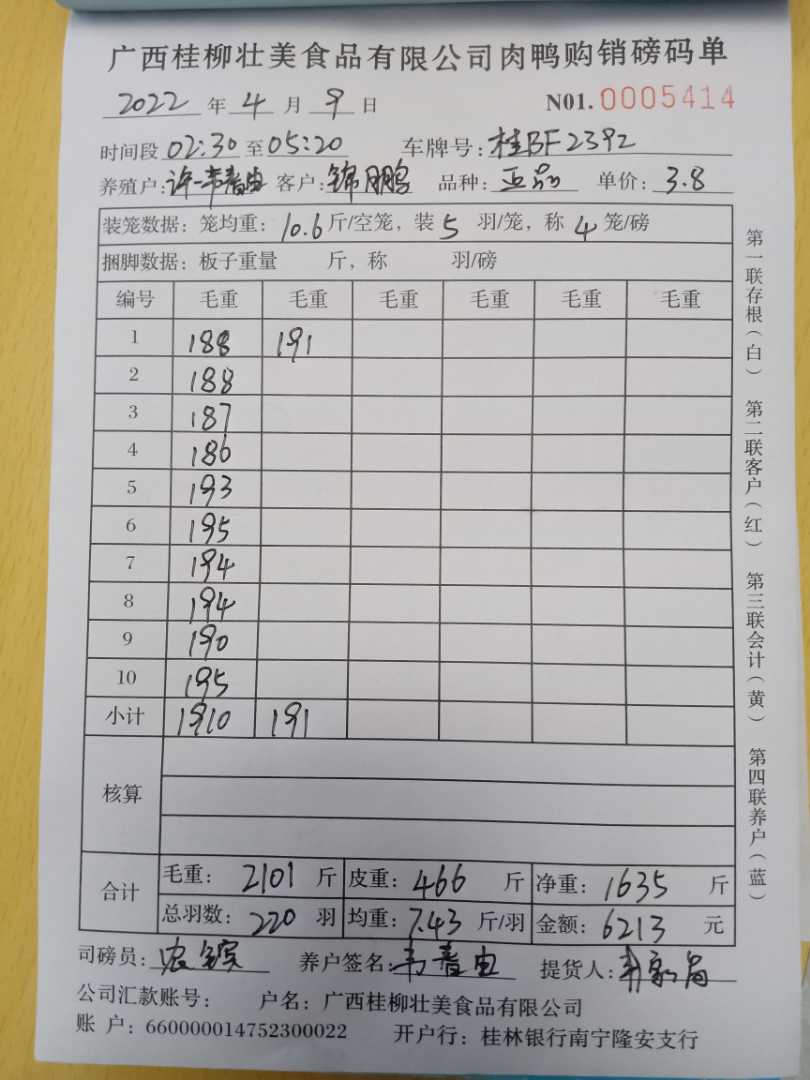 广西桂柳壮美食品有限公司肉鸭购销磅码单
2022 年 4 月 9 日 N01. 0005414
时间段 02:30 至 05:20 车牌号: 桂BF2392
养殖户: 许一韦春由 客户: 锦鹏 品种: 正品 单价: 3.8
装笼数据: 笼均重: 10.6 斤/空笼, 装 5 羽/笼, 称 4 笼/磅
捆脚数据: 板子重量 斤, 称 羽/磅
编号 毛重 毛重 毛重 毛重 毛重 毛重
1 188 191
2 188
3 187
4 186
5 193
6 195
7 194
8 194
9 190
10 195
小计 1910 191
核算
合计 毛重: 2101 斤 皮重: 466 斤 净重: 1635 斤
总羽数: 220 羽 均重: 7.43 斤/羽 金额: 6213 元
司磅员: 养户签名: 韦春由 提货人:
公司汇款账号: 户名: 广西桂柳壮美食品有限公司
账 户: 660000014752300022 开户行: 桂林银行南宁隆安支行
第一联存根(白) 第二联客户(红) 第三联会计(黄) 第四联养户(蓝)